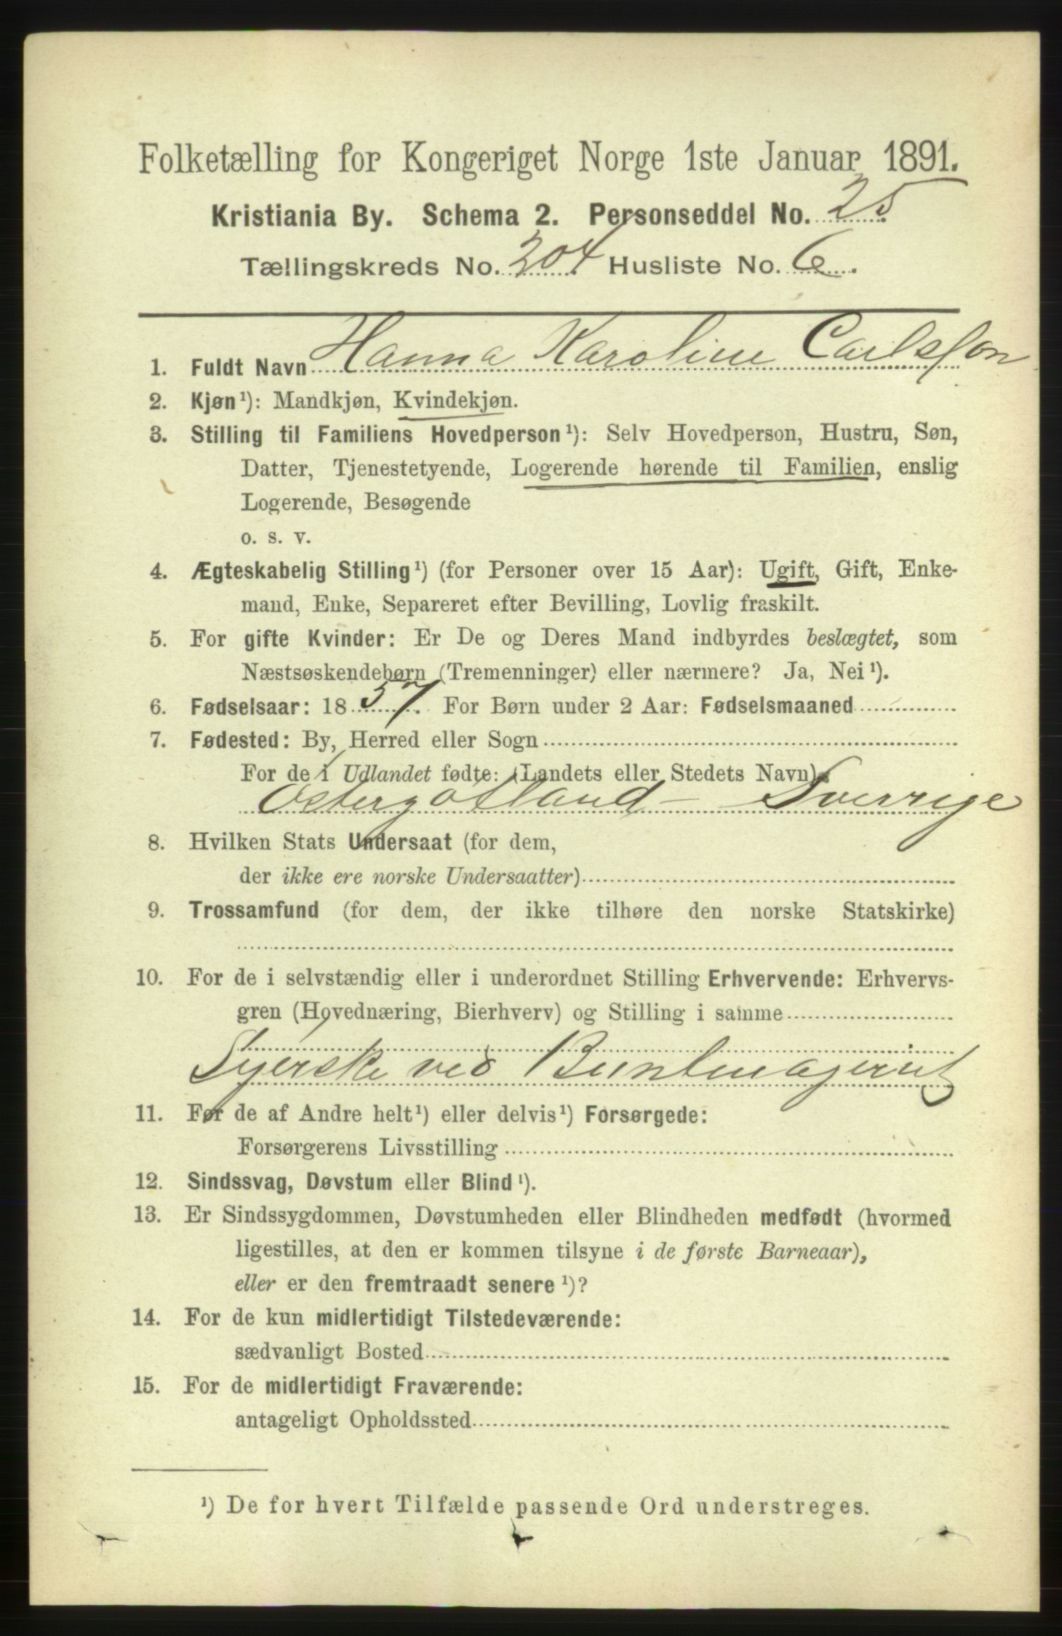 Folketælling for Kongeriget Norge 1ste Januar 1891.
Kristiania By. Schema 2. Personseddel No. 25
Tællingskreds No. 204 Husliste No. 6.
1. Fuldt Navn Hanna Karoline Carlsson
2. Kjøn¹): Mandkjøn, Kvindekjøn.
3. Stilling til Familiens Hovedperson¹): Selv Hovedperson, Hustru, Søn,
Datter, Tjenestetyende, Logerende hørende til Familien, enslig
Logerende, Besøgende
o. s. v.
4. Ægteskabelig Stilling¹) (for Personer over 15 Aar): Ugift, Gift, Enke-
mand, Enke, Separeret efter Bevilling, Lovlig fraskilt.
5. For gifte Kvinder: Er De og Deres Mand indbyrdes beslægtet, som
Næstsøskendebørn (Tremenninger) eller nærmere? Ja, Nei¹).
6. Fødselsaar: 1857. For Børn under 2 Aar: Fødselsmaaned
7. Fødested: By, Herred eller Sogn
For de i Udlandet fødte: (Landets eller Stedets Navn)
Østergøtland - Sverrige
8. Hvilken Stats Undersaat (for dem,
der ikke ere norske Undersaatter)
9. Trossamfund (for dem, der ikke tilhøre den norske Statskirke)
10. For de i selvstændig eller i underordnet Stilling Erhvervende: Erhvervs-
gren (Hovednæring, Bierhverv) og Stilling i samme
Syerske ved Buntmageriet
11. For de af Andre helt¹) eller delvis¹) Forsørgede:
Forsørgerens Livsstilling
12. Sindssvag, Døvstum eller Blind¹).
13. Er Sindssygdommen, Døvstumheden eller Blindheden medfødt (hvormed
ligestilles, at den er kommen tilsyne i de første Barneaar),
eller er den fremtraadt senere¹)?
14. For de kun midlertidigt Tilstedeværende:
sædvanligt Bosted
15. For de midlertidigt Fraværende:
antageligt Opholdssted
¹) De for hvert Tilfælde passende Ord understreges.